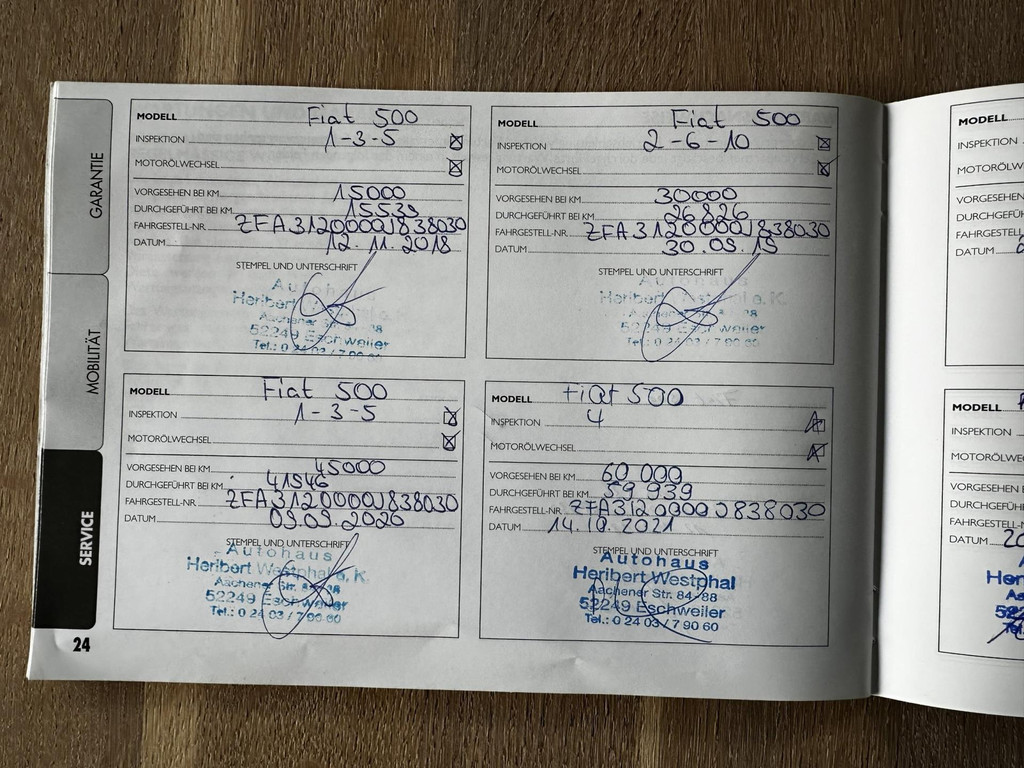 GARANTIE
MOBILITÄT
SERVICE
24
MODELL Fiat 500
INSPEKTION 1-3-5
MOTORÖLWECHSEL
VORGESEHEN BEI KM 15000
DURCHGEFÜHRT BEI KM 15539
FAHRGESTELL-NR. ZFA3120000J838030
DATUM 12.11.2018
STEMPEL UND UNTERSCHRIFT
Autohaus
Heribert
Aachener Str. 84-88
52249 Eschweiler
Tel.: 0 24 03 / 7 90 60
MODELL Fiat 500
INSPEKTION 2-6-10
MOTORÖLWECHSEL
VORGESEHEN BEI KM 30000
DURCHGEFÜHRT BEI KM 26826
FAHRGESTELL-NR. ZFA3120000J838030
DATUM 30.09.19
STEMPEL UND UNTERSCHRIFT
Autohaus
Heribert Westphal e. K.
Aachener Str. 84-88
52249 Eschweiler
Tel.: 0 24 03 / 7 90 60
MODELL Fiat 500
INSPEKTION 1-3-5
MOTORÖLWECHSEL
VORGESEHEN BEI KM 45000
DURCHGEFÜHRT BEI KM 41546
FAHRGESTELL-NR. ZFA3120000J838030
DATUM 09.09.2020
STEMPEL UND UNTERSCHRIFT
Autohaus
Heribert Westphal e. K.
Aachener Str. 84-88
52249 Eschweiler
Tel.: 0 24 03 / 7 90 60
MODELL Fiat 500
INSPEKTION 4
MOTORÖLWECHSEL
VORGESEHEN BEI KM 60 000
DURCHGEFÜHRT BEI KM 59 939
FAHRGESTELL-NR. ZFA3120000J838030
DATUM 14.10.2021
STEMPEL UND UNTERSCHRIFT
Autohaus
Heribert Westphal
Aachener Str. 84-88
52249 Eschweiler
Tel.: 0 24 03 / 7 90 60
MODELL
INSPEKTION
MOTORÖLW
VORGESEHEN
DURCHGEFÜ
FAHRGESTELL
DATUM
MODELL
INSPEKTION
MOTORÖLWE
VORGESEHEN B
DURCHGEFÜH
FAHRGESTELL-N
DATUM 20